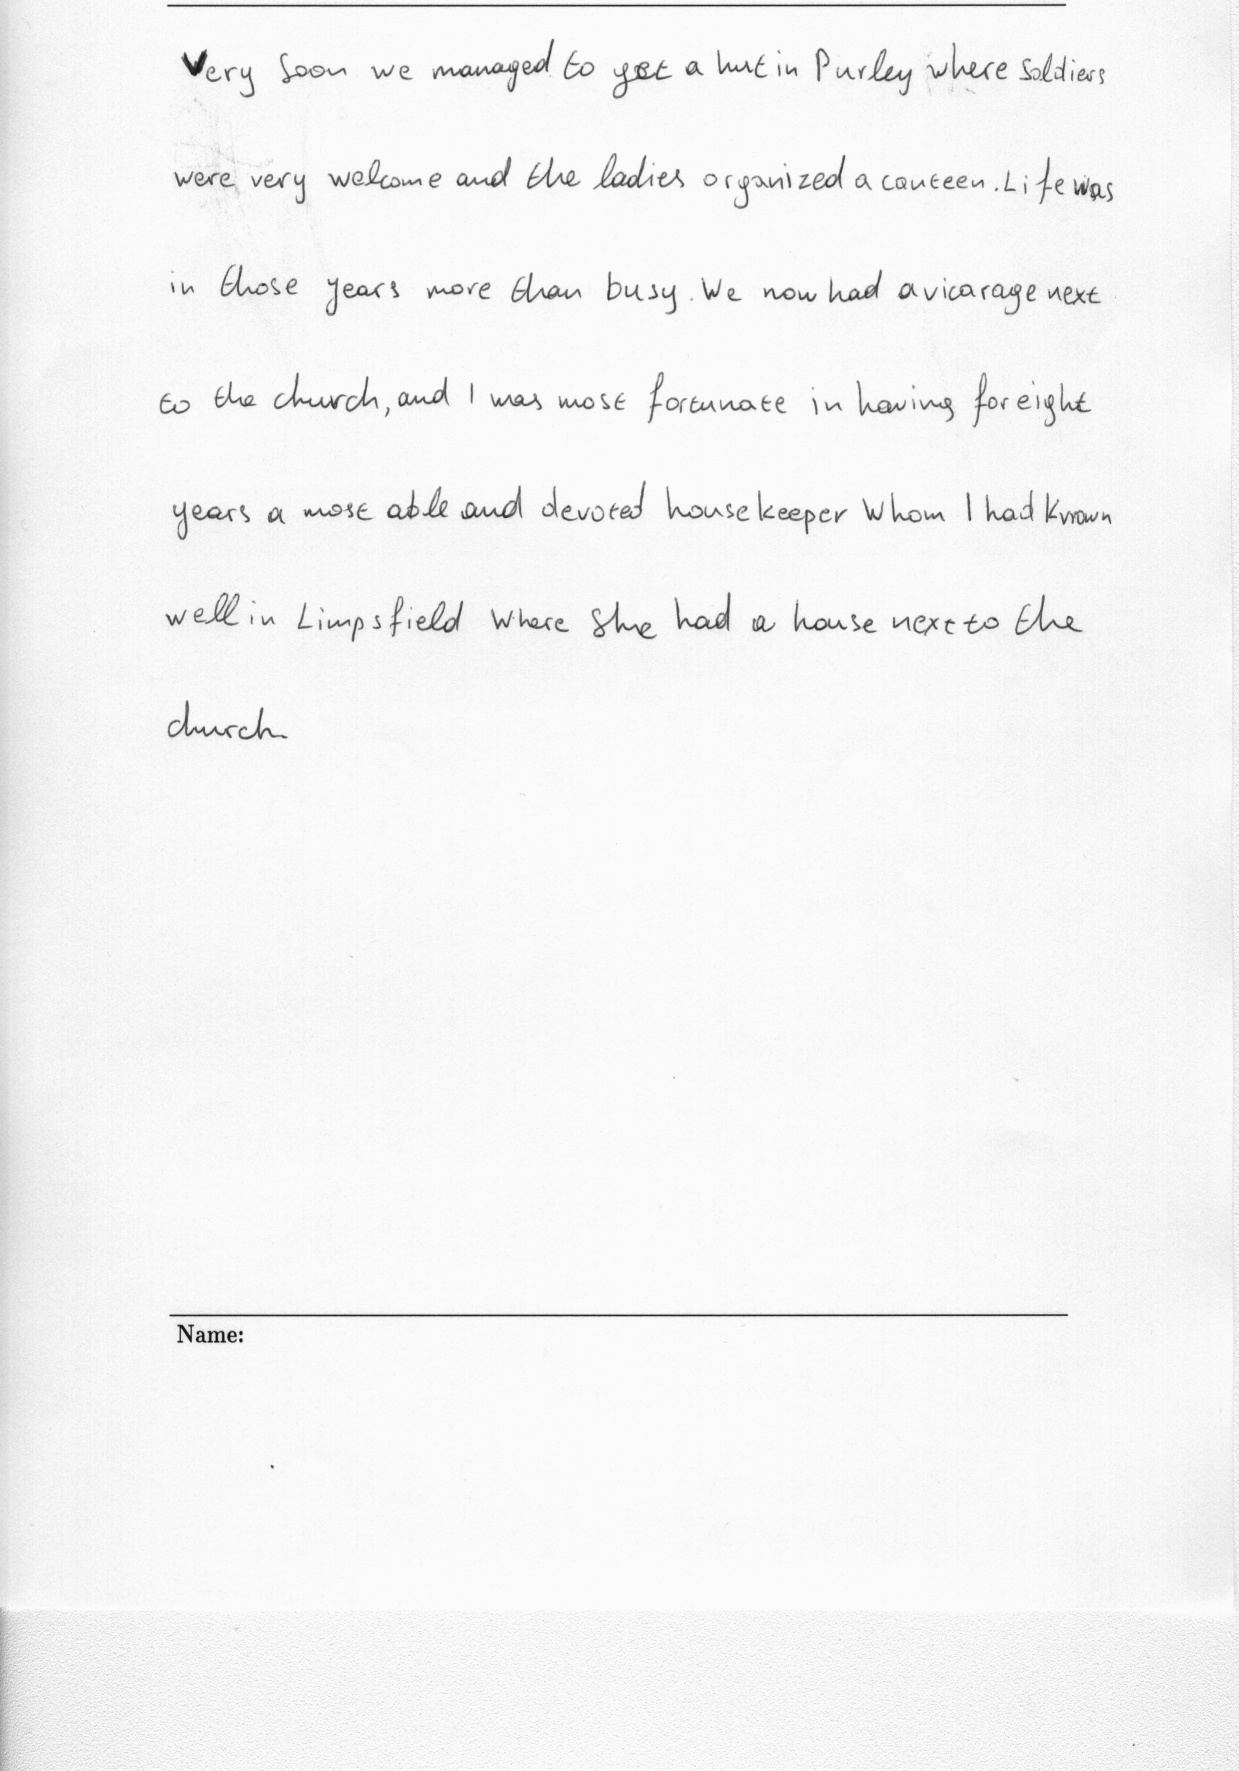 Very soon we managed to get a hut in Purley where soldiers
were very welcome and the ladies organized a canteen. Life was
in those years more than busy. We now had a vicarage next
to the church, and I was most fortunate in having for eight
years a most able and devoted housekeeper whom I had known
well in Limpsfield where she had a house next to the
church.
Name: